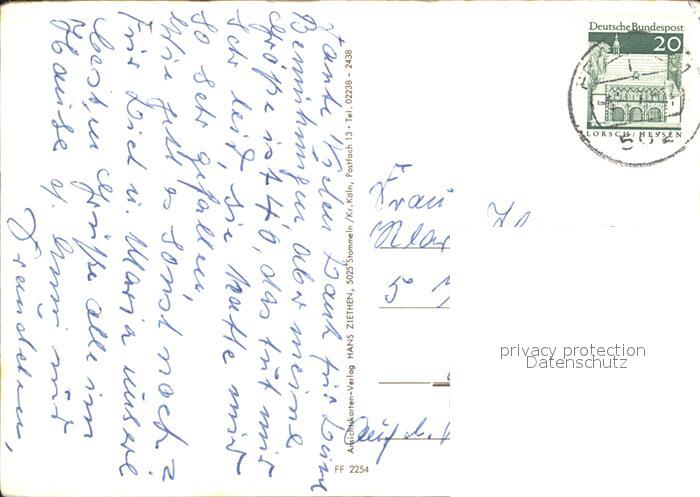 Tante! Vielen Dank für Deine
Bemühungen aber meine
Größe ist 46, das tut mir
sehr leid sie hatte mir
so sehr gefallen,
Wie geht es sonst noch?
Für Dich u. Maria unsere
besten Grüße alle im
Hause
Ansichtskarten-Verlag HANS ZIETHEN, 5025 Stommeln/Kr. Köln, Postfach 13 · Tel. 02238 - 2438
FF 2254
Deutsche Bundespost
20
LORSCH/HESSEN
502
Frau
5
privacy protection
Datenschutz